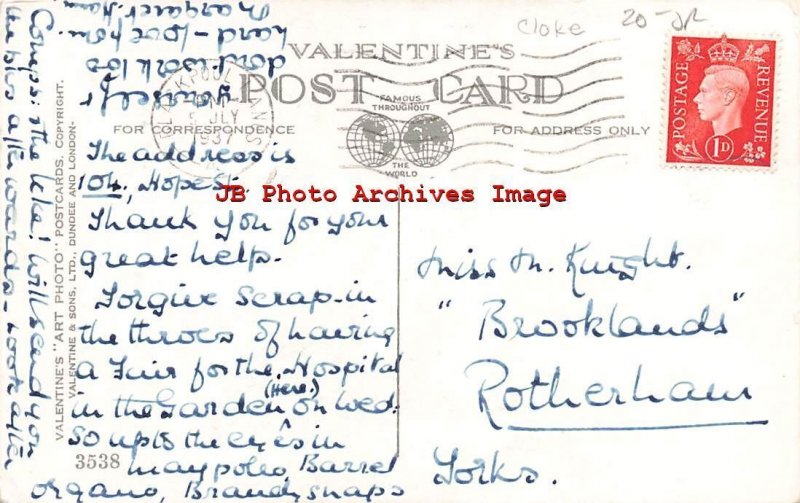 Cloke 20-JR
VALENTINE'S
POST CARD
FAMOUS
THROUGHOUT
THE
WORLD
FOR CORRESPONDENCE
FOR ADDRESS ONLY
BLACKPOOL
JULY
1937
LANCS
POSTAGE
REVENUE
1D
The address is
104, Hope St.
Thank you for your
great help.
Forgive scrap - in
the throes of having
a Fair for the Hospital
(Here)
in the Garden on Wed.
So up to the eyes in
maypoles, Barrel
organs, Brandysnaps
Corups: the lake! Will send you
the bks afterwards - Look after
yourself
don't work too
hard - love from
Margaret
Miss M. Knight.
"Brooklands"
Rotherham
Yorks.
VALENTINE'S "ART PHOTO" POSTCARDS. COPYRIGHT.
VALENTINE & SONS, LTD., DUNDEE AND LONDON-
3538
JB Photo Archives Image